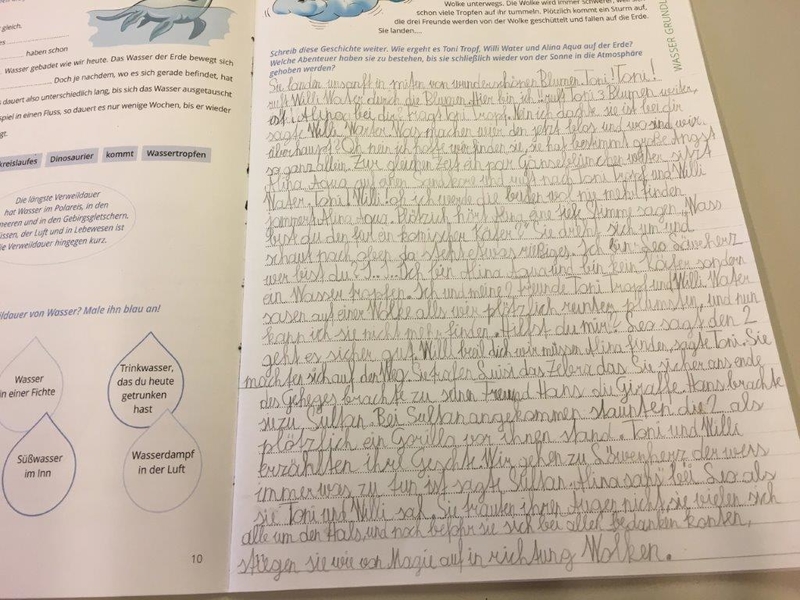 gleich.
haben schon
Wasser gebadet wie wir heute. Das Wasser der Erde bewegt sich
Doch je nachdem, wo es sich gerade befindet, hat
dauert also unterschiedlich lang, bis sich das Wasser ausgetauscht
spiel in einen Fluss, so dauert es nur wenige Wochen, bis er wieder
gt.
kreislaufes Dinosaurier kommt Wassertropfen
Die längste Verweildauer
hat Wasser im Polareis, in den
meeren und in den Gebirgsgletschern.
üssen, der Luft und in Lebewesen ist
ie Verweildauer hingegen kurz.
ldauer von Wasser? Male ihn blau an!
Wasser
in einer Fichte
Trinkwasser,
das du heute
getrunken
hast
Süßwasser
im Inn
Wasserdampf
in der Luft
10
Wolke unterwegs. Die Wolke wird immer
schon viele Tropfen auf ihr tummeln. Plötzlich kommt ein Sturm auf,
die drei Freunde werden von der Wolke geschüttelt und fallen auf die Erde.
Sie landen....
WASSER GRUNDL
Schreib diese Geschichte weiter. Wie ergeht es Toni Tropf, Willi Water und Alina Aqua auf der Erde?
Welche Abenteuer haben sie zu bestehen, bis sie schließlich wieder von der Sonne in die Atmosphäre
gehoben werden?
Sie landen unsanft in miten von wunderschönen Blumen. Toni! Toni!
ruft Willi Water durch die Blumen. Hier bin ich ruft Toni 3 Blumen weiter,
ist Alina bei dir? fragt Toni Tropf. Nein ich dachte sie ist bei dir
sagte Willi Water. Was machen wir den jetzt und wo sind wir
überhaupt? Oh nein ich hoffe wir finden sie, sie hat bestimmt große Angst
so ganz allein. Zur gleichen Zeit ein par Gänseblümchen weiter sitzt
Alina Aqua auf einer und ruft nach Toni Tropf und Willi
Water. Toni! Willi! oh ich werde die beiden wol nie mehr finden
jammert Alina Aqua. Plötzlich hört Alina eine tiefe Stimme sagen „Wass
bist du den für ein komischer Käfer?" Sie dreht sich um und
schaut nach oben da steht etwas rießiges. Ich bin Leo Löwenherz
wer bisst du? I... I... Ich bin Alina Aqua und bin kein Käfer sondern
ein Wasser tropfen. Ich und meine 2 Freunde Toni Tropf und Willi Water
sasen auf einer Wolke als wir plötzlich runter plumsten, und nun
kann ich sie nicht mehr finden. Hilfst du mir? Leo sagt den 2
geht es sicher gut. Willi beal dich wir müssen Alina finden, sagte Toni. Sie
machten sich auf den Weg. Sie trafen Susi das Zebra das Sie sicher ans ende
des Geheges brachte zu seinen Freund Hans die Giraffe. Hans brachte
sie zu Sultan. Bei Sultan angekommen staunten die 2 als
plötzlich ein Gorilla vor ihnen stand. Toni und Willi
erzählten ihre Geschte. Wir gehen zu Löwenherz der weis
immer was zu tun ist sagte Sultan. Alina sahs bei Leo als
sie Toni und Willi sah. Sie trauten ihren Augen nicht, sie vielen sich
alle um den Hals, und noch befohr sie sich bei allen bedanken konten,
stiegen sie wie von Magie auf in richtung Wolken.